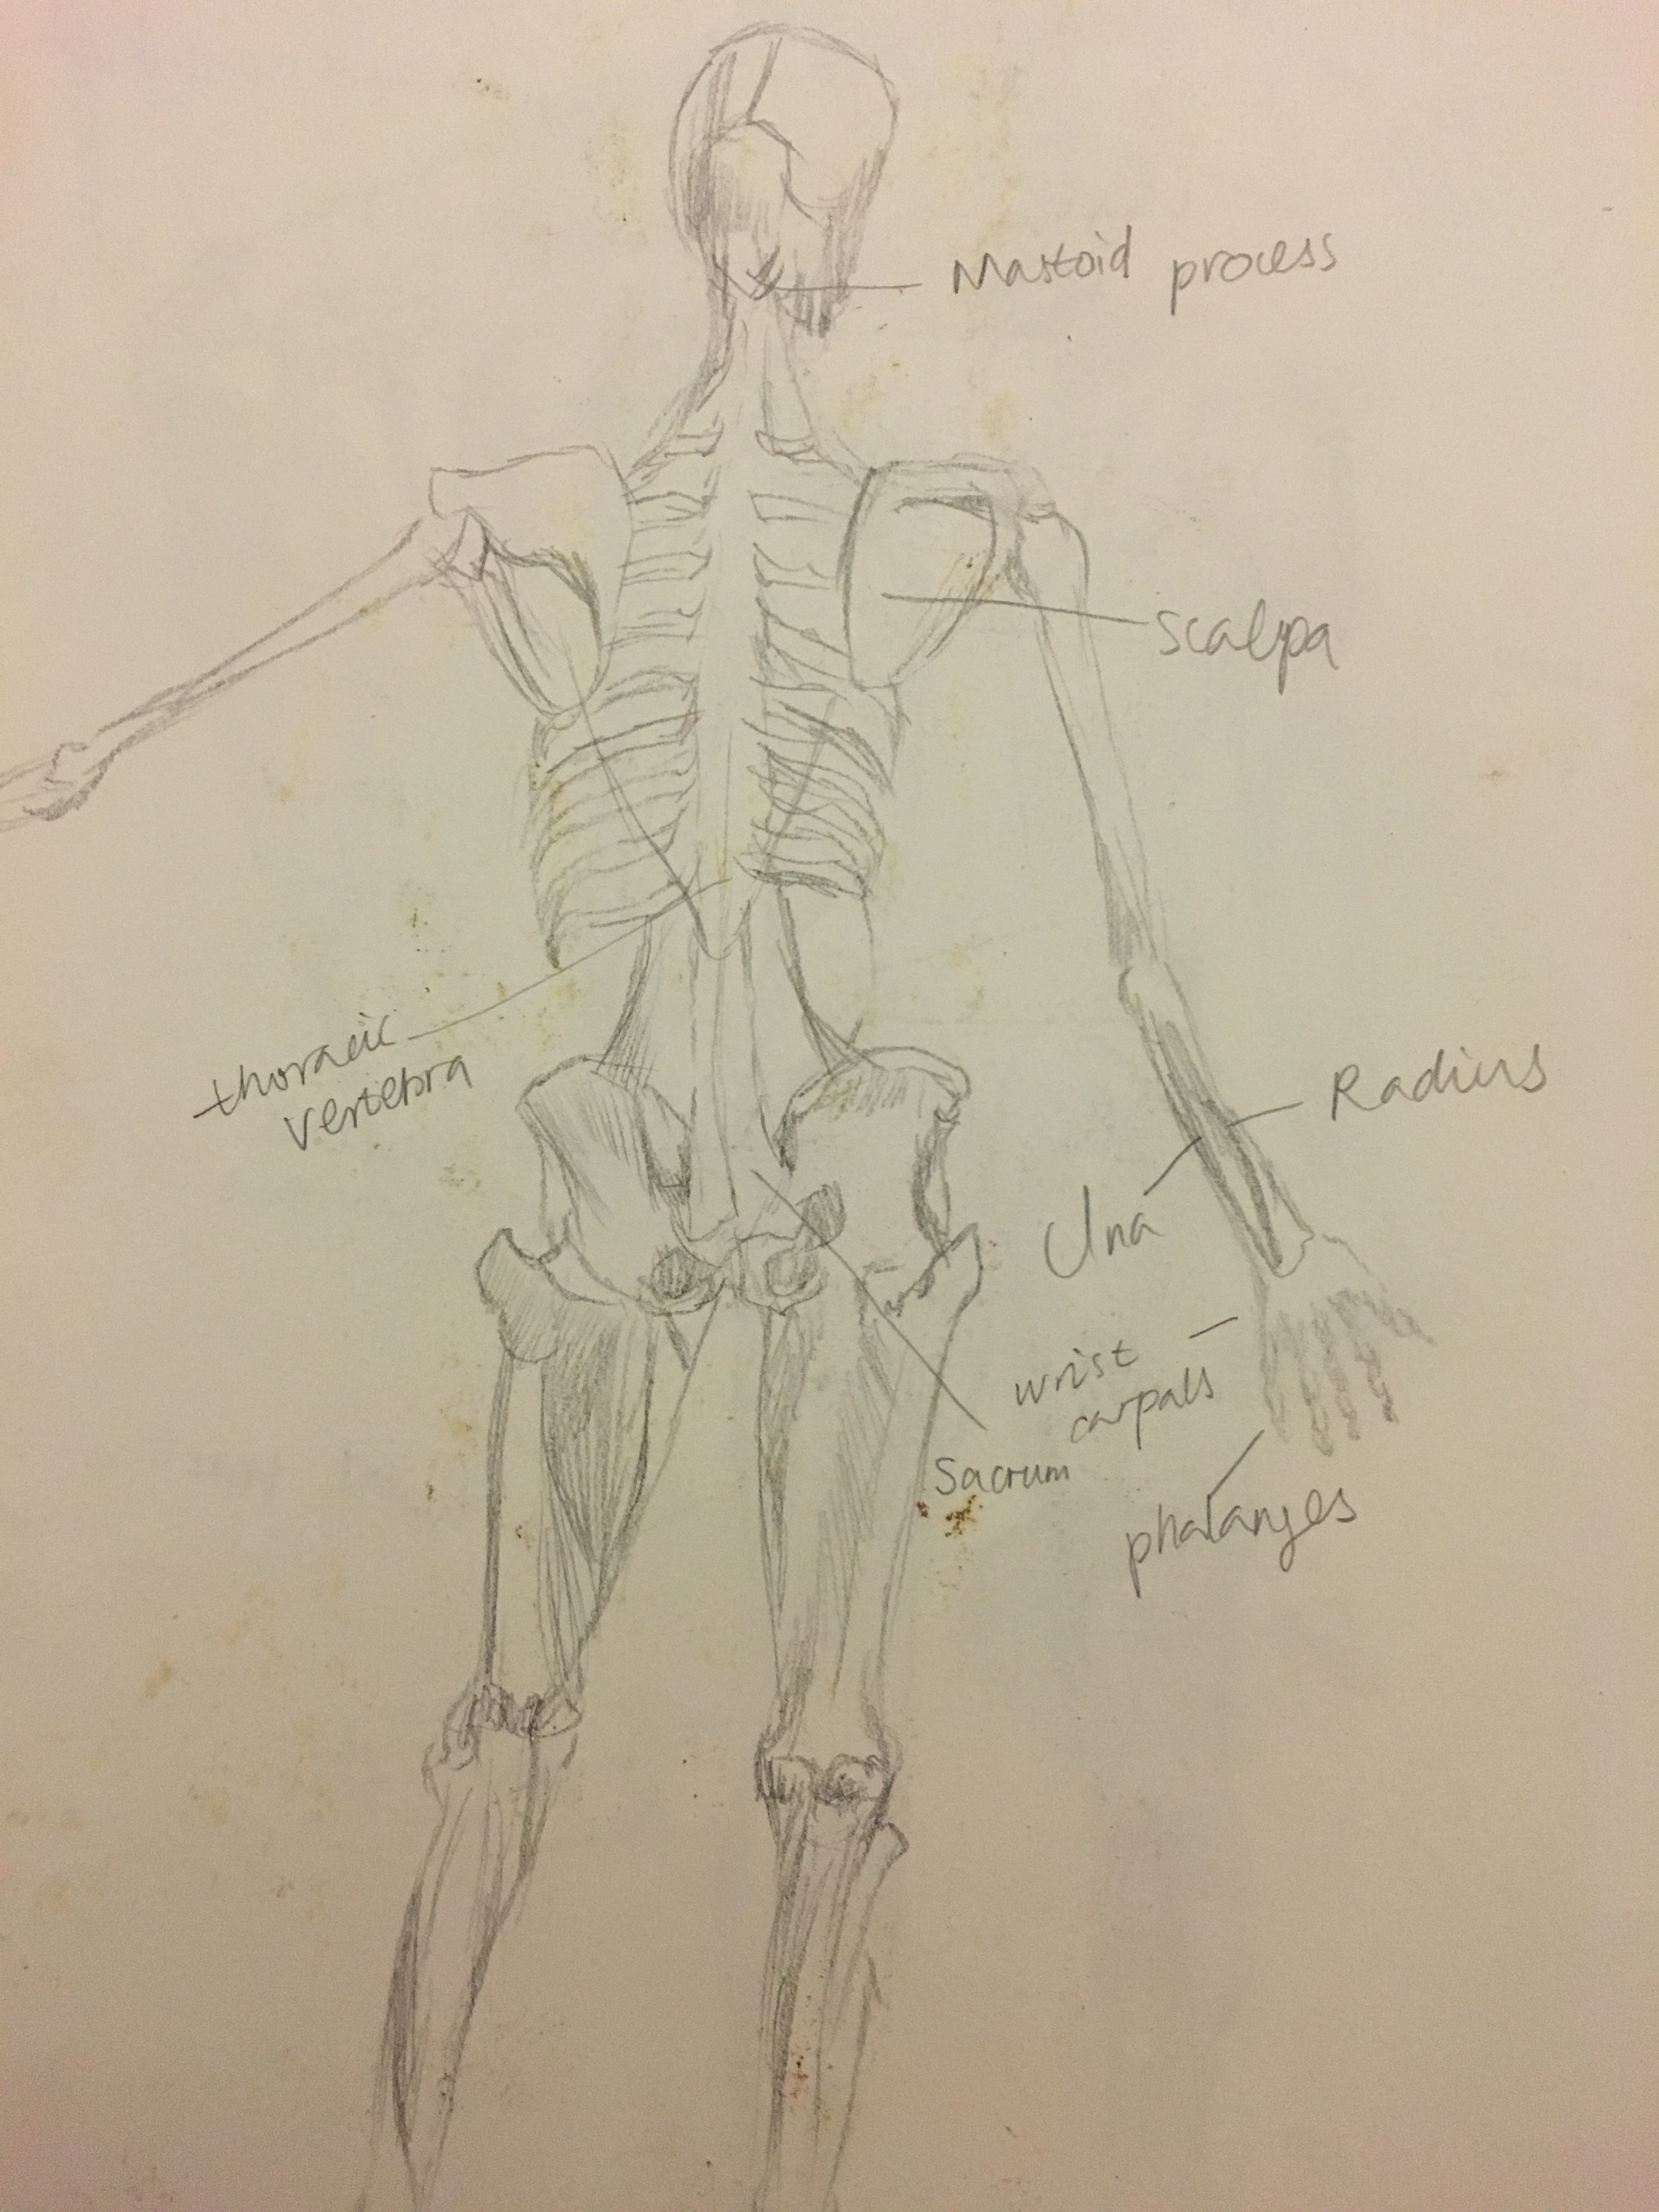 Mastoid process
scalpa
thoracic
vertebra
Radius
Ulna
wrist
carpals
Sacrum
phalanges